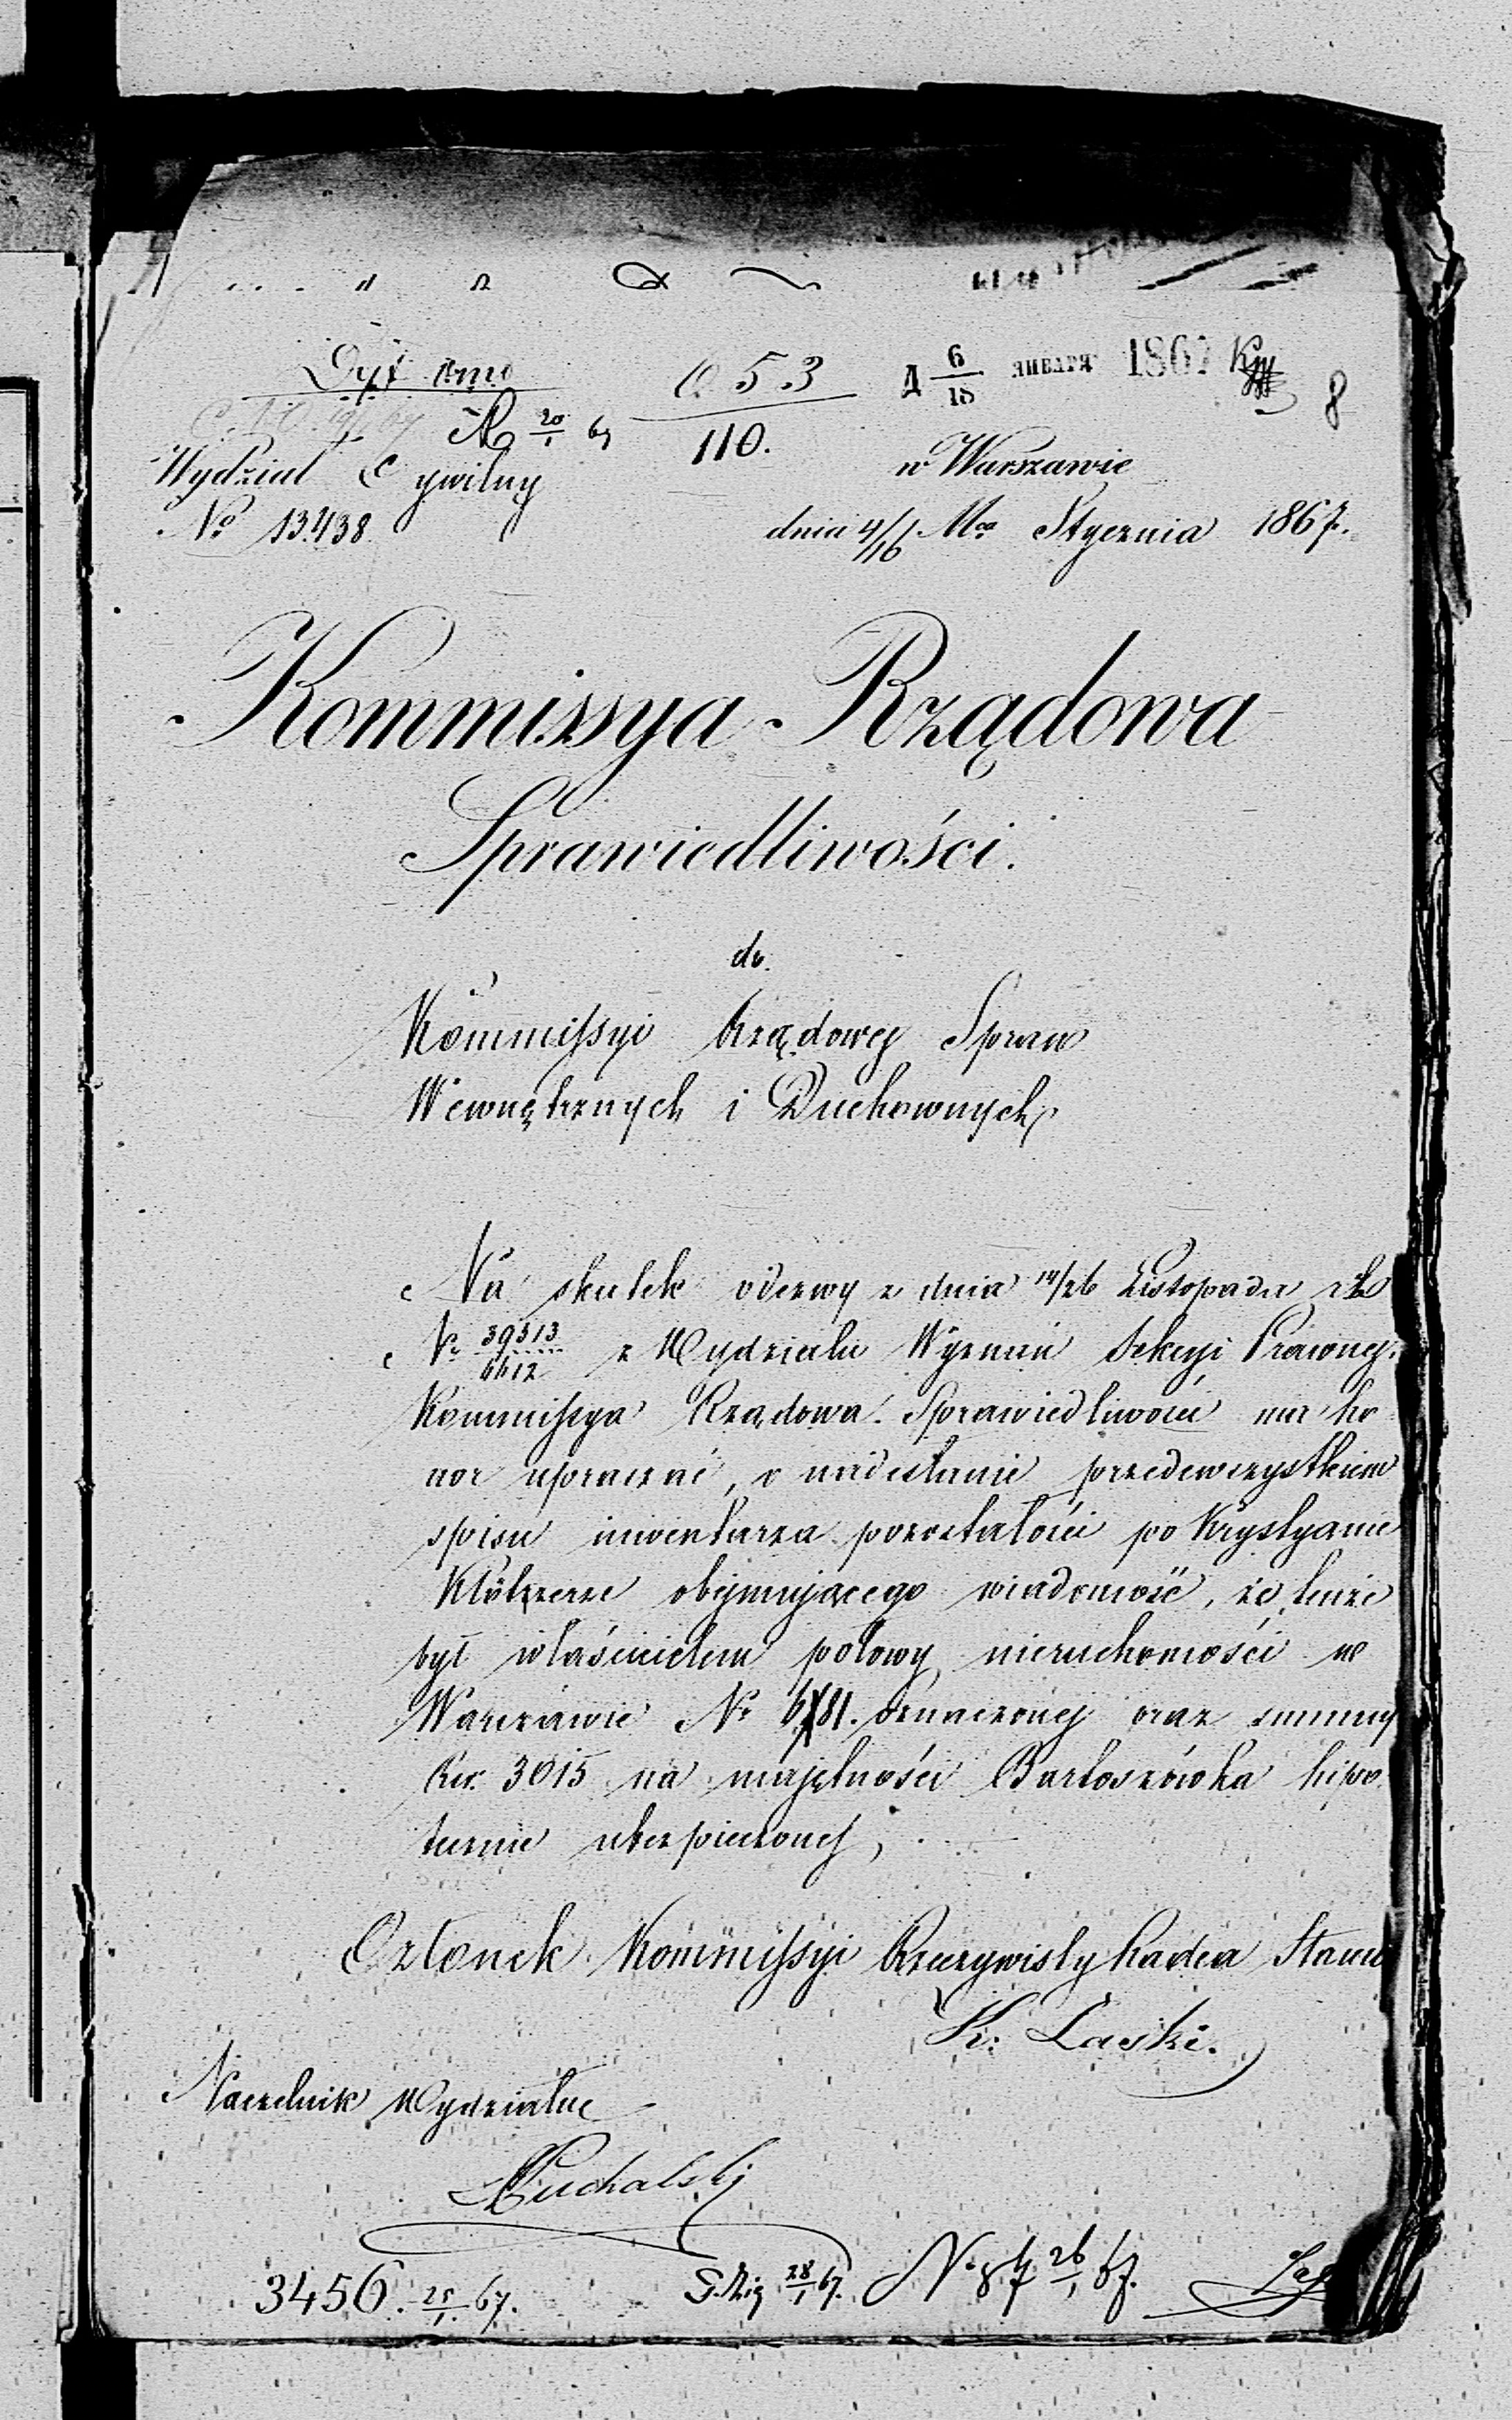 53
Д 6/18 ЯНВАРЯ 1867
8
20/1 67
110.
Wydział Cywilny
w Warszawie
№ 13438
dnia 4/16 Mca Stycznia 1867.
Kommissya Rządowa
Sprawiedliwości.
do
Kommissyi Rządowej Spraw
Wewnętrznych i Duchownych
Na skutek odezwy z dnia 14/26 Listopada
Nr 39313/6612 z Wydziału Wyznań Sekcyi Prawnej.
Kommissya Rządowa Sprawiedliwości ma ho
nor upraszać, o nadesłanie przedewszystkiem
spisu inwentarza pozostałości po Krystyanie
obejmującego wiadomość, że tenże
był właścicielem połowy nieruchomości w
Warszawie Nr oznaczonej oraz summy
Rsr. 3015 na majętności Bartoszówka hipo
tecznie ubezpieczonej,
Członek Kommissyi Rzeczywisty Radca Stanu
K: Laski.
Naczelnik Wydziału
Puchalski
3456. 25/1 67.
28/1 67. N. 87 26/1 67.